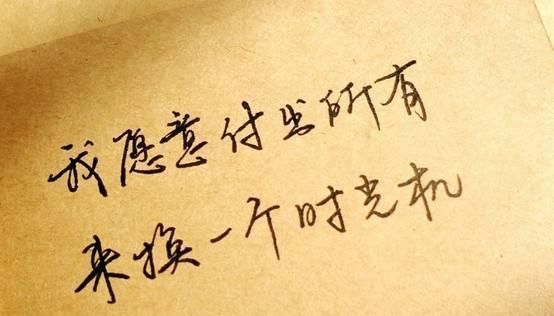 我愿意付出所有
来换一个时光机